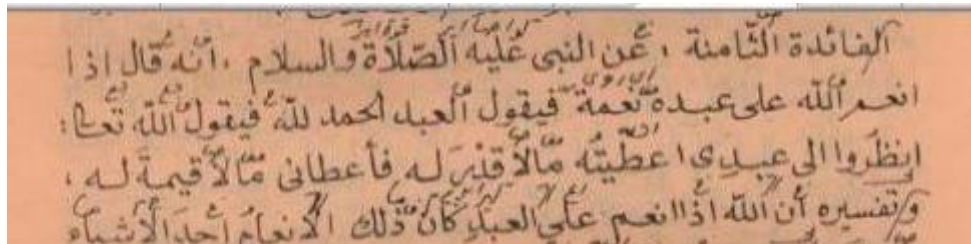 الفائدة الثامنة ، عن النبى عليه الصلاة والسلام ، انه قال اذا
انعم الله على عبده نعمة فيقول العبد الحمد لله فيقول الله تعا :
انظروا الى عبدى اعطيته مالا قدر له فأعطانى مالا قيمة له ،
وتفسيره أن الله اذا انعم على العبد كان ذلك الانعام أحد الأشياء